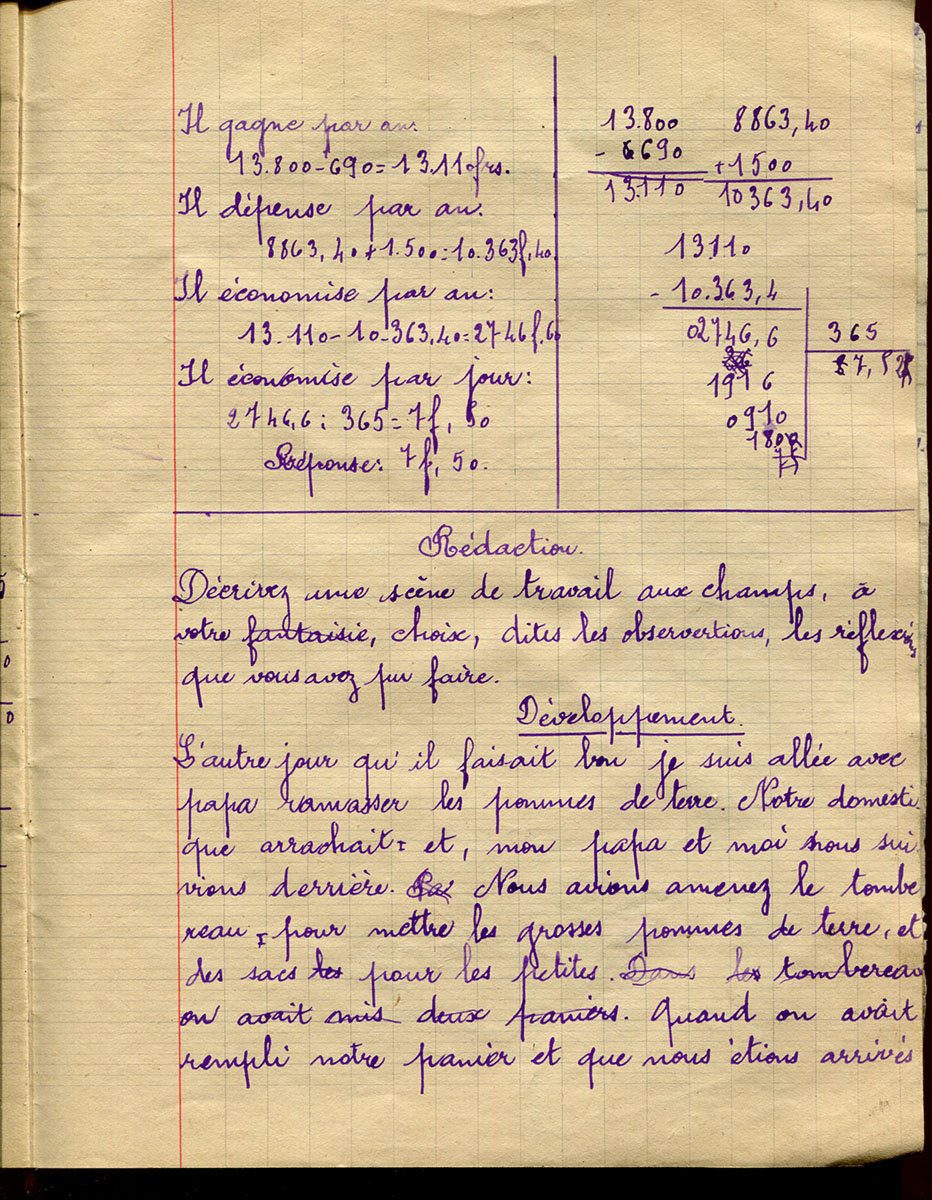 Il gagne par an:
13.800-690=13.110frs.
Il dépense par an:
8863,40+1.500=10.363f,40
Il économise par an:
13.110-10.363,40=2746f.60
Il économise par jour:
2746,6:365=7f,50
Réponse: 7f,50.
13.800 8863,40
- 690 +1500
13.110 10363,40
13110
- 10.363,4
02746,6 365
7,52
1916
0910
180
Rédaction.
Décrivez une scène de travail aux champs, à
votre fantaisie, choix, dites les observertions, les réflexions
que vous avez pu faire.
Développement.
L'autre jour qu'il faisait bon je suis allée avec
papa ramasser les pommes de terre. Notre domesti
que arrachait et, mon papa et moi nous sui
vions derrière. Nous avions amenez le tombe
reau, pour mettre les grosses pommes de terre, et
des sacs les pour les petites. Dans les tombereau
on avait mis deux paniers. Quand on avait
rempli notre panier et que nous étions arrivés